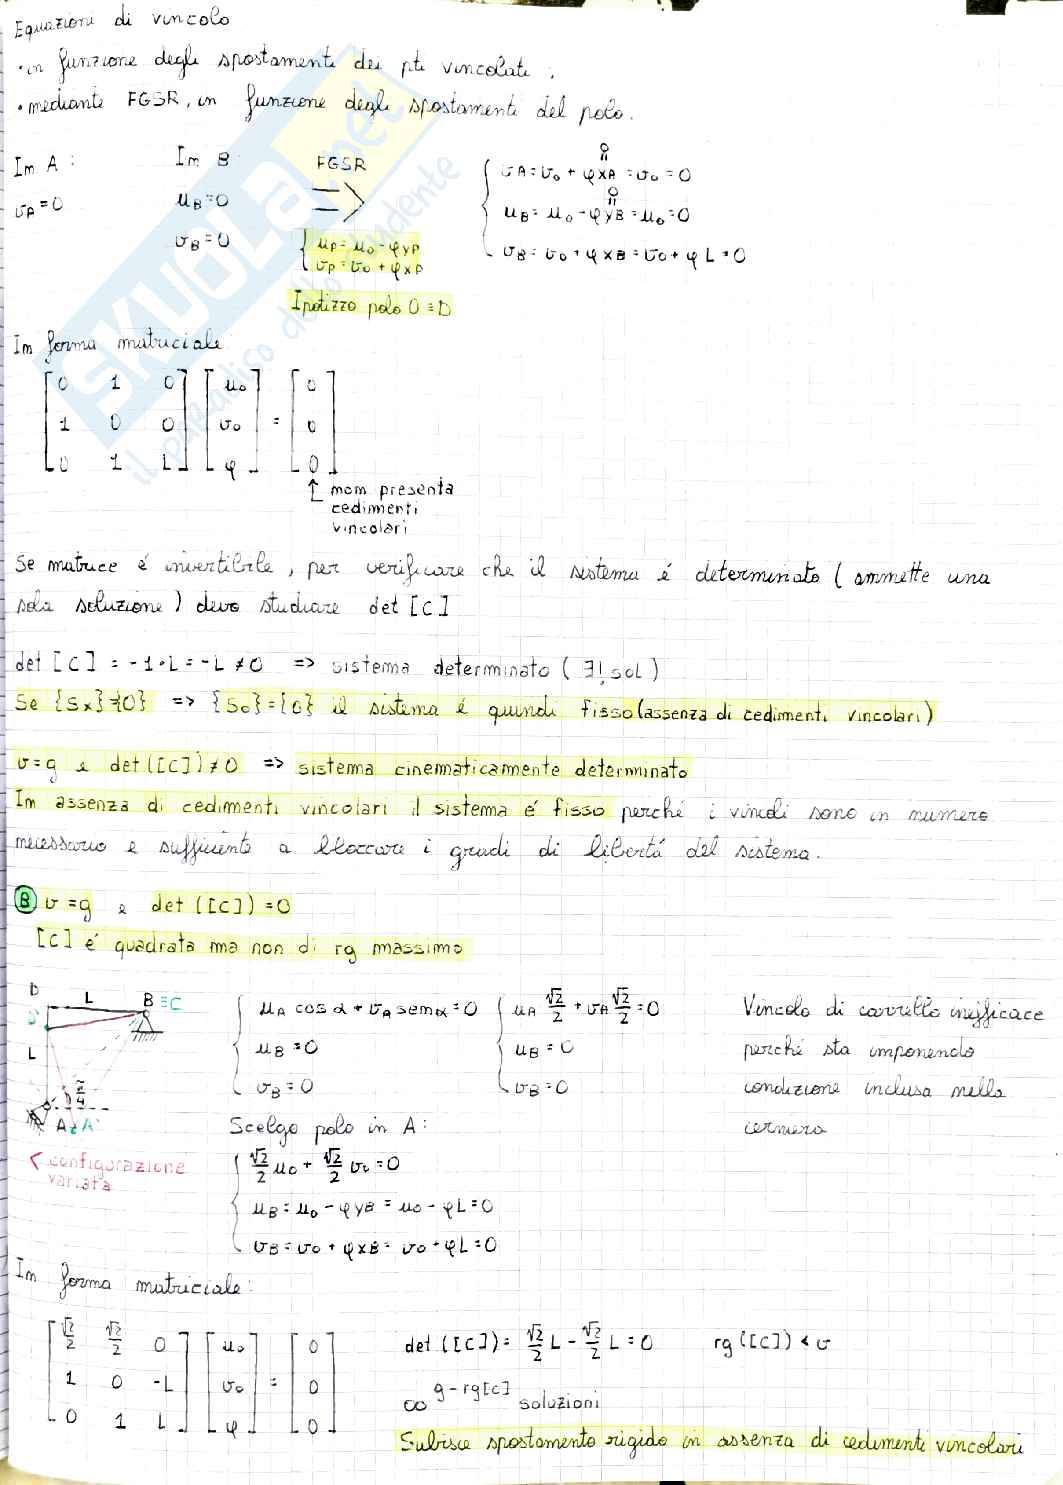 Equazioni di vincolo
• in funzione degli spostamenti dei pti vincolati;
• mediante FGSR, in funzione degli spostamenti del polo.
In A: In B: FGSR
v_A=0 u_B=0 ⇒
v_B=0
{ u_P = u_0 - φ y_P
v_P = v_0 + φ x_P
Ipotizzo polo O ≡ D
{ v_A = v_0 + φ x_A = v_0 = 0
u_B = u_0 - φ y_B = u_0 = 0
v_B = v_0 + φ x_B = v_0 + φ L = 0
0 0
In forma matriciale:
[0 1 0] [u_0] = [0]
[1 0 0] [v_0] [0]
[0 1 L] [φ] [0]
↑ non presenta
cedimenti
vincolari
Se matrice é invertibile, per verificare che il sistema é determinato (ammette una
sola soluzione) devo studiare det [C]
det [C] = -1·L = -L ≠ 0 => sistema determinato (∃! sol)
Se {Sx}={0} => {S_0}={0} il sistema é quindi fisso (assenza di cedimenti vincolari)
v=g e det([C])≠0 => sistema cinematicamente determinato
In assenza di cedimenti vincolari il sistema é fisso perché i vincoli sono in numero
necessario e sufficiente a bloccare i gradi di libertá del sistema.
B v=g e det([C])=0
[C] é quadrata ma non di rg massimo
D L B ≡C
D'
L
π/4
A ≡ A'
< configurazione
variata
{ u_A cos α + v_A sen α = 0
u_B = 0
v_B = 0
{ u_A √2/2 + v_A √2/2 = 0
u_B = 0
v_B = 0
Vincolo di carrello inefficace
perché sta imponendo
condizione inclusa nella
cerniera
Scelgo polo in A:
{ √2/2 u_0 + √2/2 v_0 = 0
u_B = u_0 - φ y_B = u_0 - φ L = 0
v_B = v_0 + φ x_B = v_0 + φ L = 0
In forma matriciale:
[√2/2 √2/2 0] [u_0] = [0]
[1 0 -L] [v_0] [0]
[0 1 L] [φ] [0]
det([C]) = √2/2 L - √2/2 L = 0 rg([C]) < v
∞^(g-rg[C]) soluzioni
Subisce spostamento rigido in assenza di cedimenti vincolari
SKUOLA.net
il paradiso dello studente